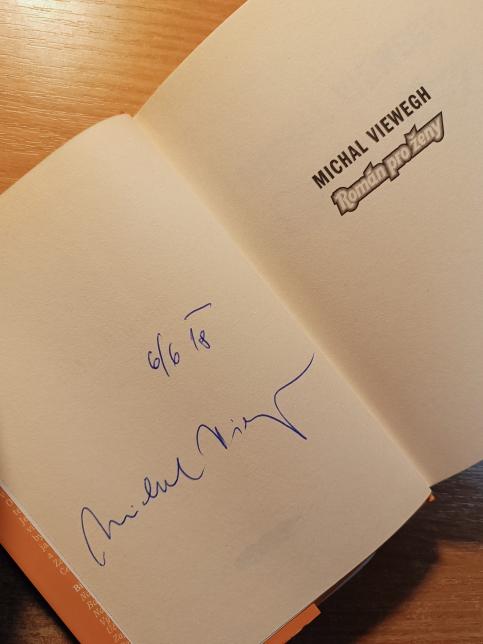 6/6 18
Michal Viewegh
MICHAL VIEWEGH
Román pro ženy